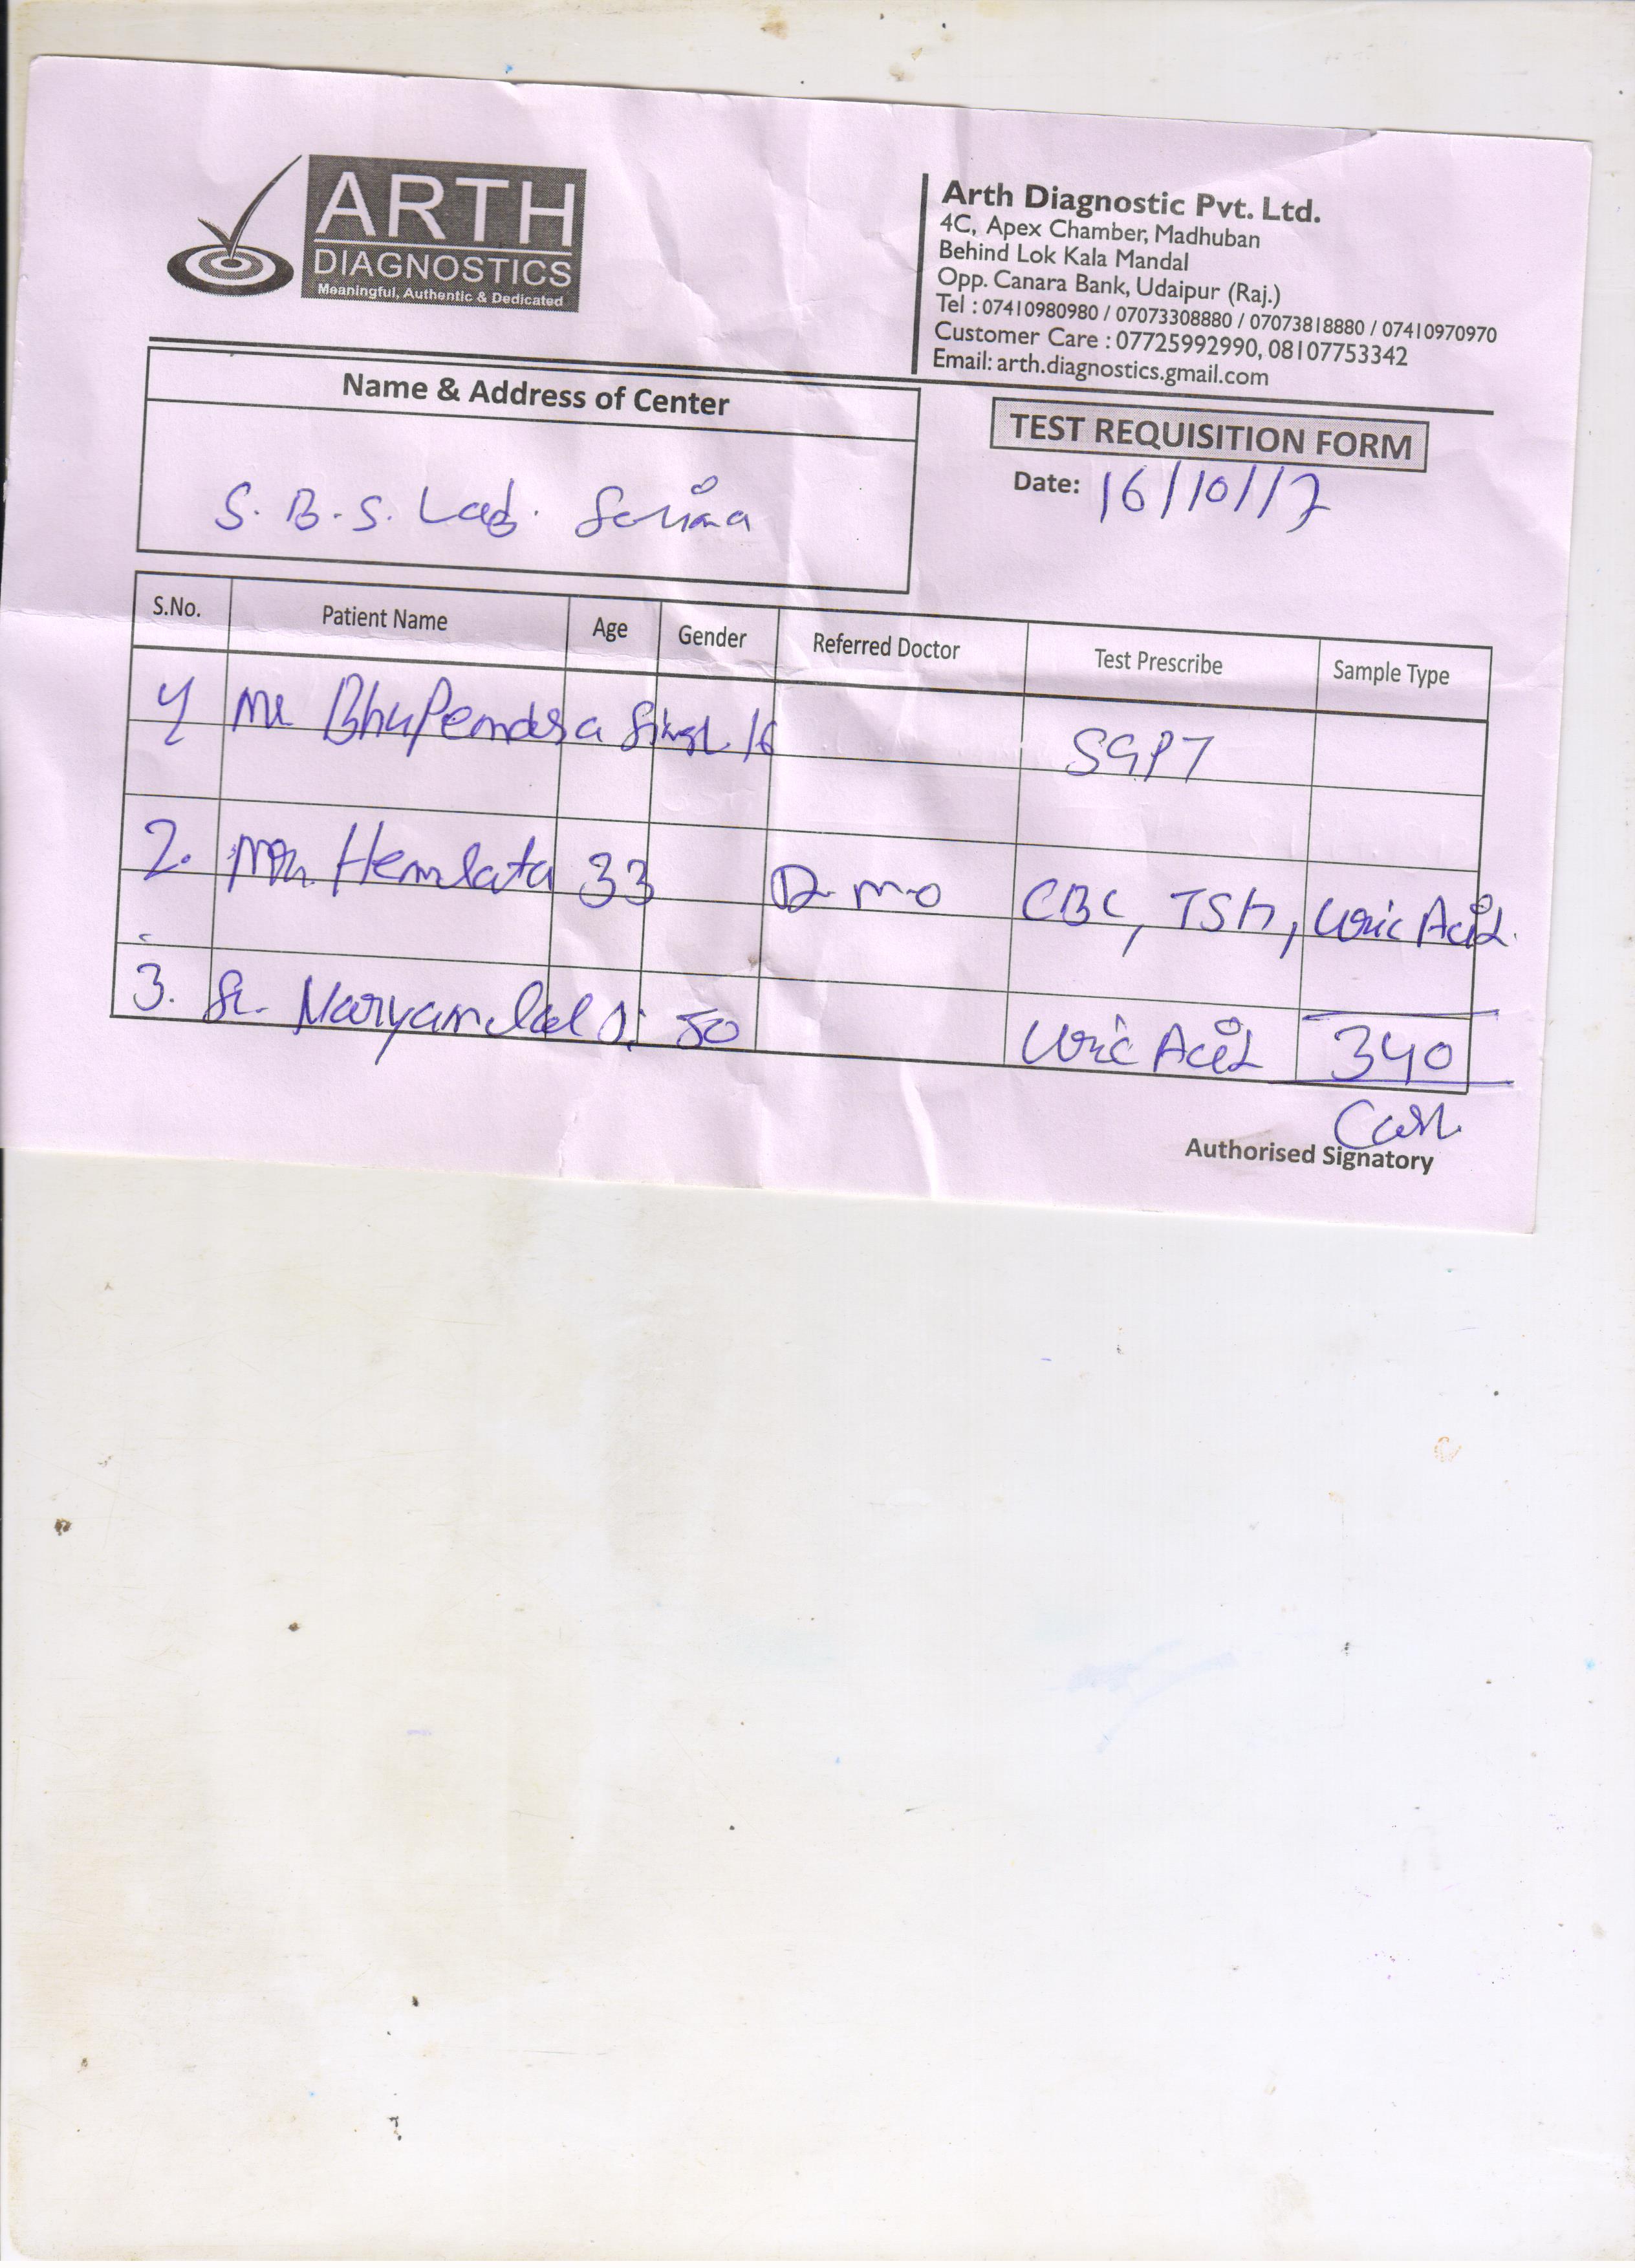 ARTH
DIAGNOSTICS
Meaningful, Authentic & Dedicated
Arth Diagnostic Pvt. Ltd.
4C, Apex Chamber, Madhuban
Behind Lok Kala Mandal
Opp. Canara Bank, Udaipur (Raj.)
Tel : 07410980980 / 07073308880 / 07073818880 / 07410970970
Customer Care : 07725992990, 08107753342
Email: arth.diagnostics.gmail.com
Name & Address of Center
S. B. S. Lab.
TEST REQUISITION FORM
Date: 16/10/17
S.No. Patient Name Age Gender Referred Doctor Test Prescribe Sample Type
Mr Bhupendra Singh 16 SGPT
2. Hemlata 33 CBC, TSH, Uric Acid.
3. 50 Uric Acid 340
Cash
Authorised Signatory